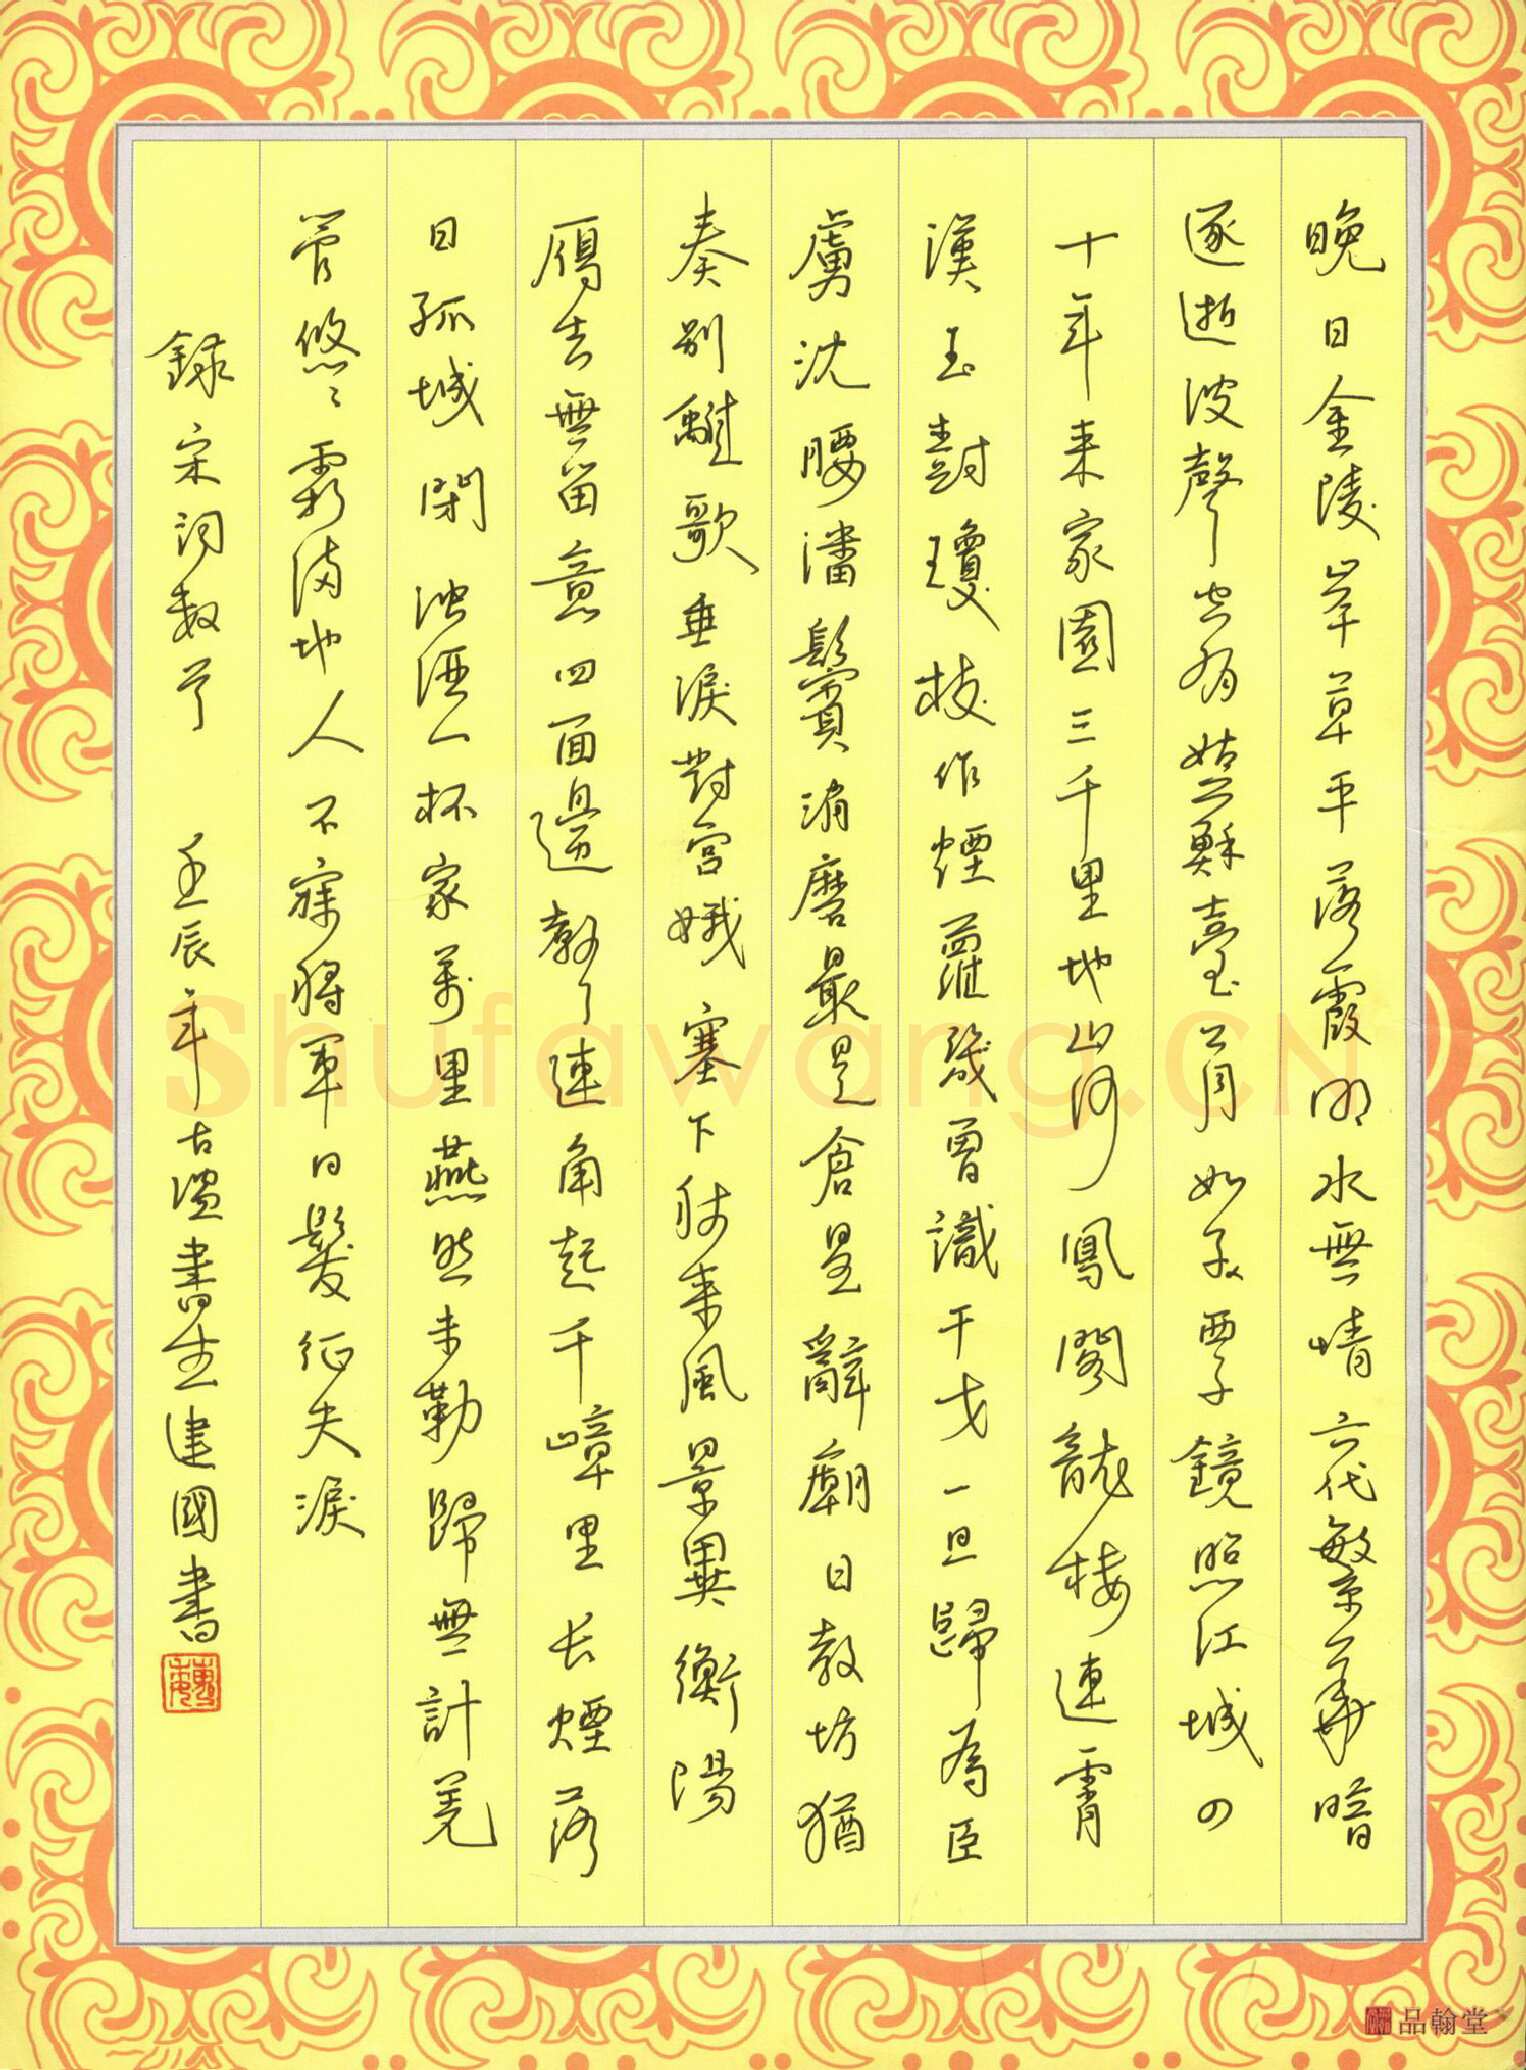 晚日金陵岸草平落霞明水無情六代繁華暗
逐逝波聲空有姑蘇臺上月如子西子鏡照江城四
十年来家園三千里地山河鳳閣龍樓連霄
漢玉樹瓊枝作煙蘿幾曾識干戈一旦歸為臣
虜沈腰潘鬢消磨最是倉皇辭廟日教坊猶
奏別離歌垂淚對宮娥塞下秋来風景異衡陽
雁去無留意四面邊聲連角起千嶂里长煙落
日孤城閉濁酒一杯家萬里燕然未勒歸無計羌
管悠々霜满地人不寐將軍白髮征夫淚
録宋詞數首 壬辰年古温書生建國書
品翰堂
Shufawang.CN